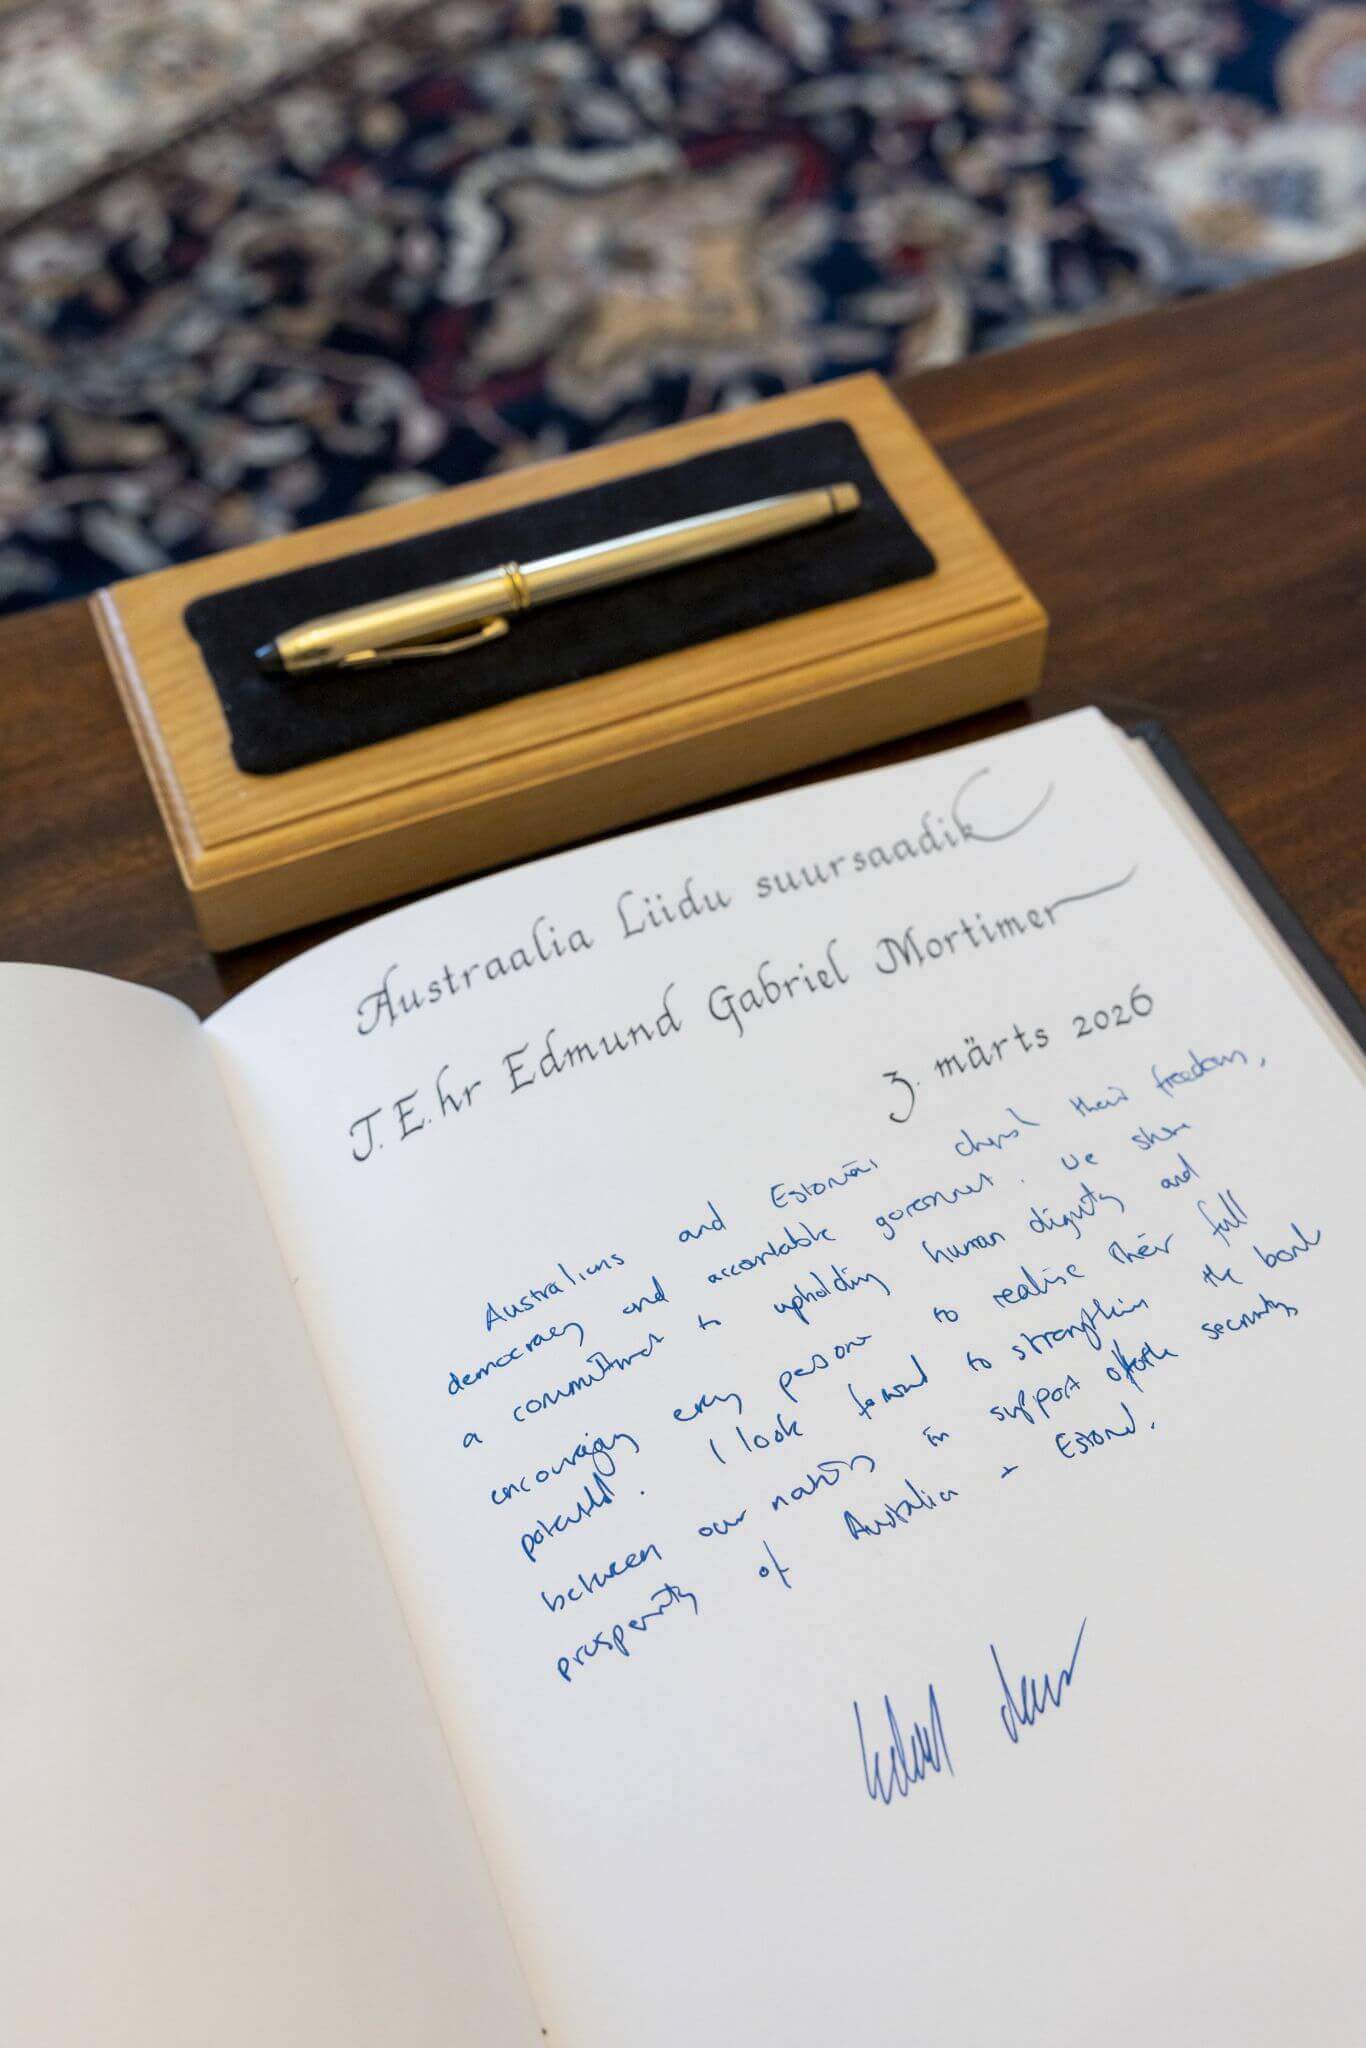 Austraalia Liidu suursaadik
T.E.hr Edmund Gabriel Mortimer
3. märts 2026
Australians and Estonians cherish their freedom,
democracy and accountable government. We share
a commitment to upholding human dignity and
encouraging every person to realise their full
potential. I look forward to strengthen the bond
between our nations in support of the security
prosperity of Australia + Estonia.